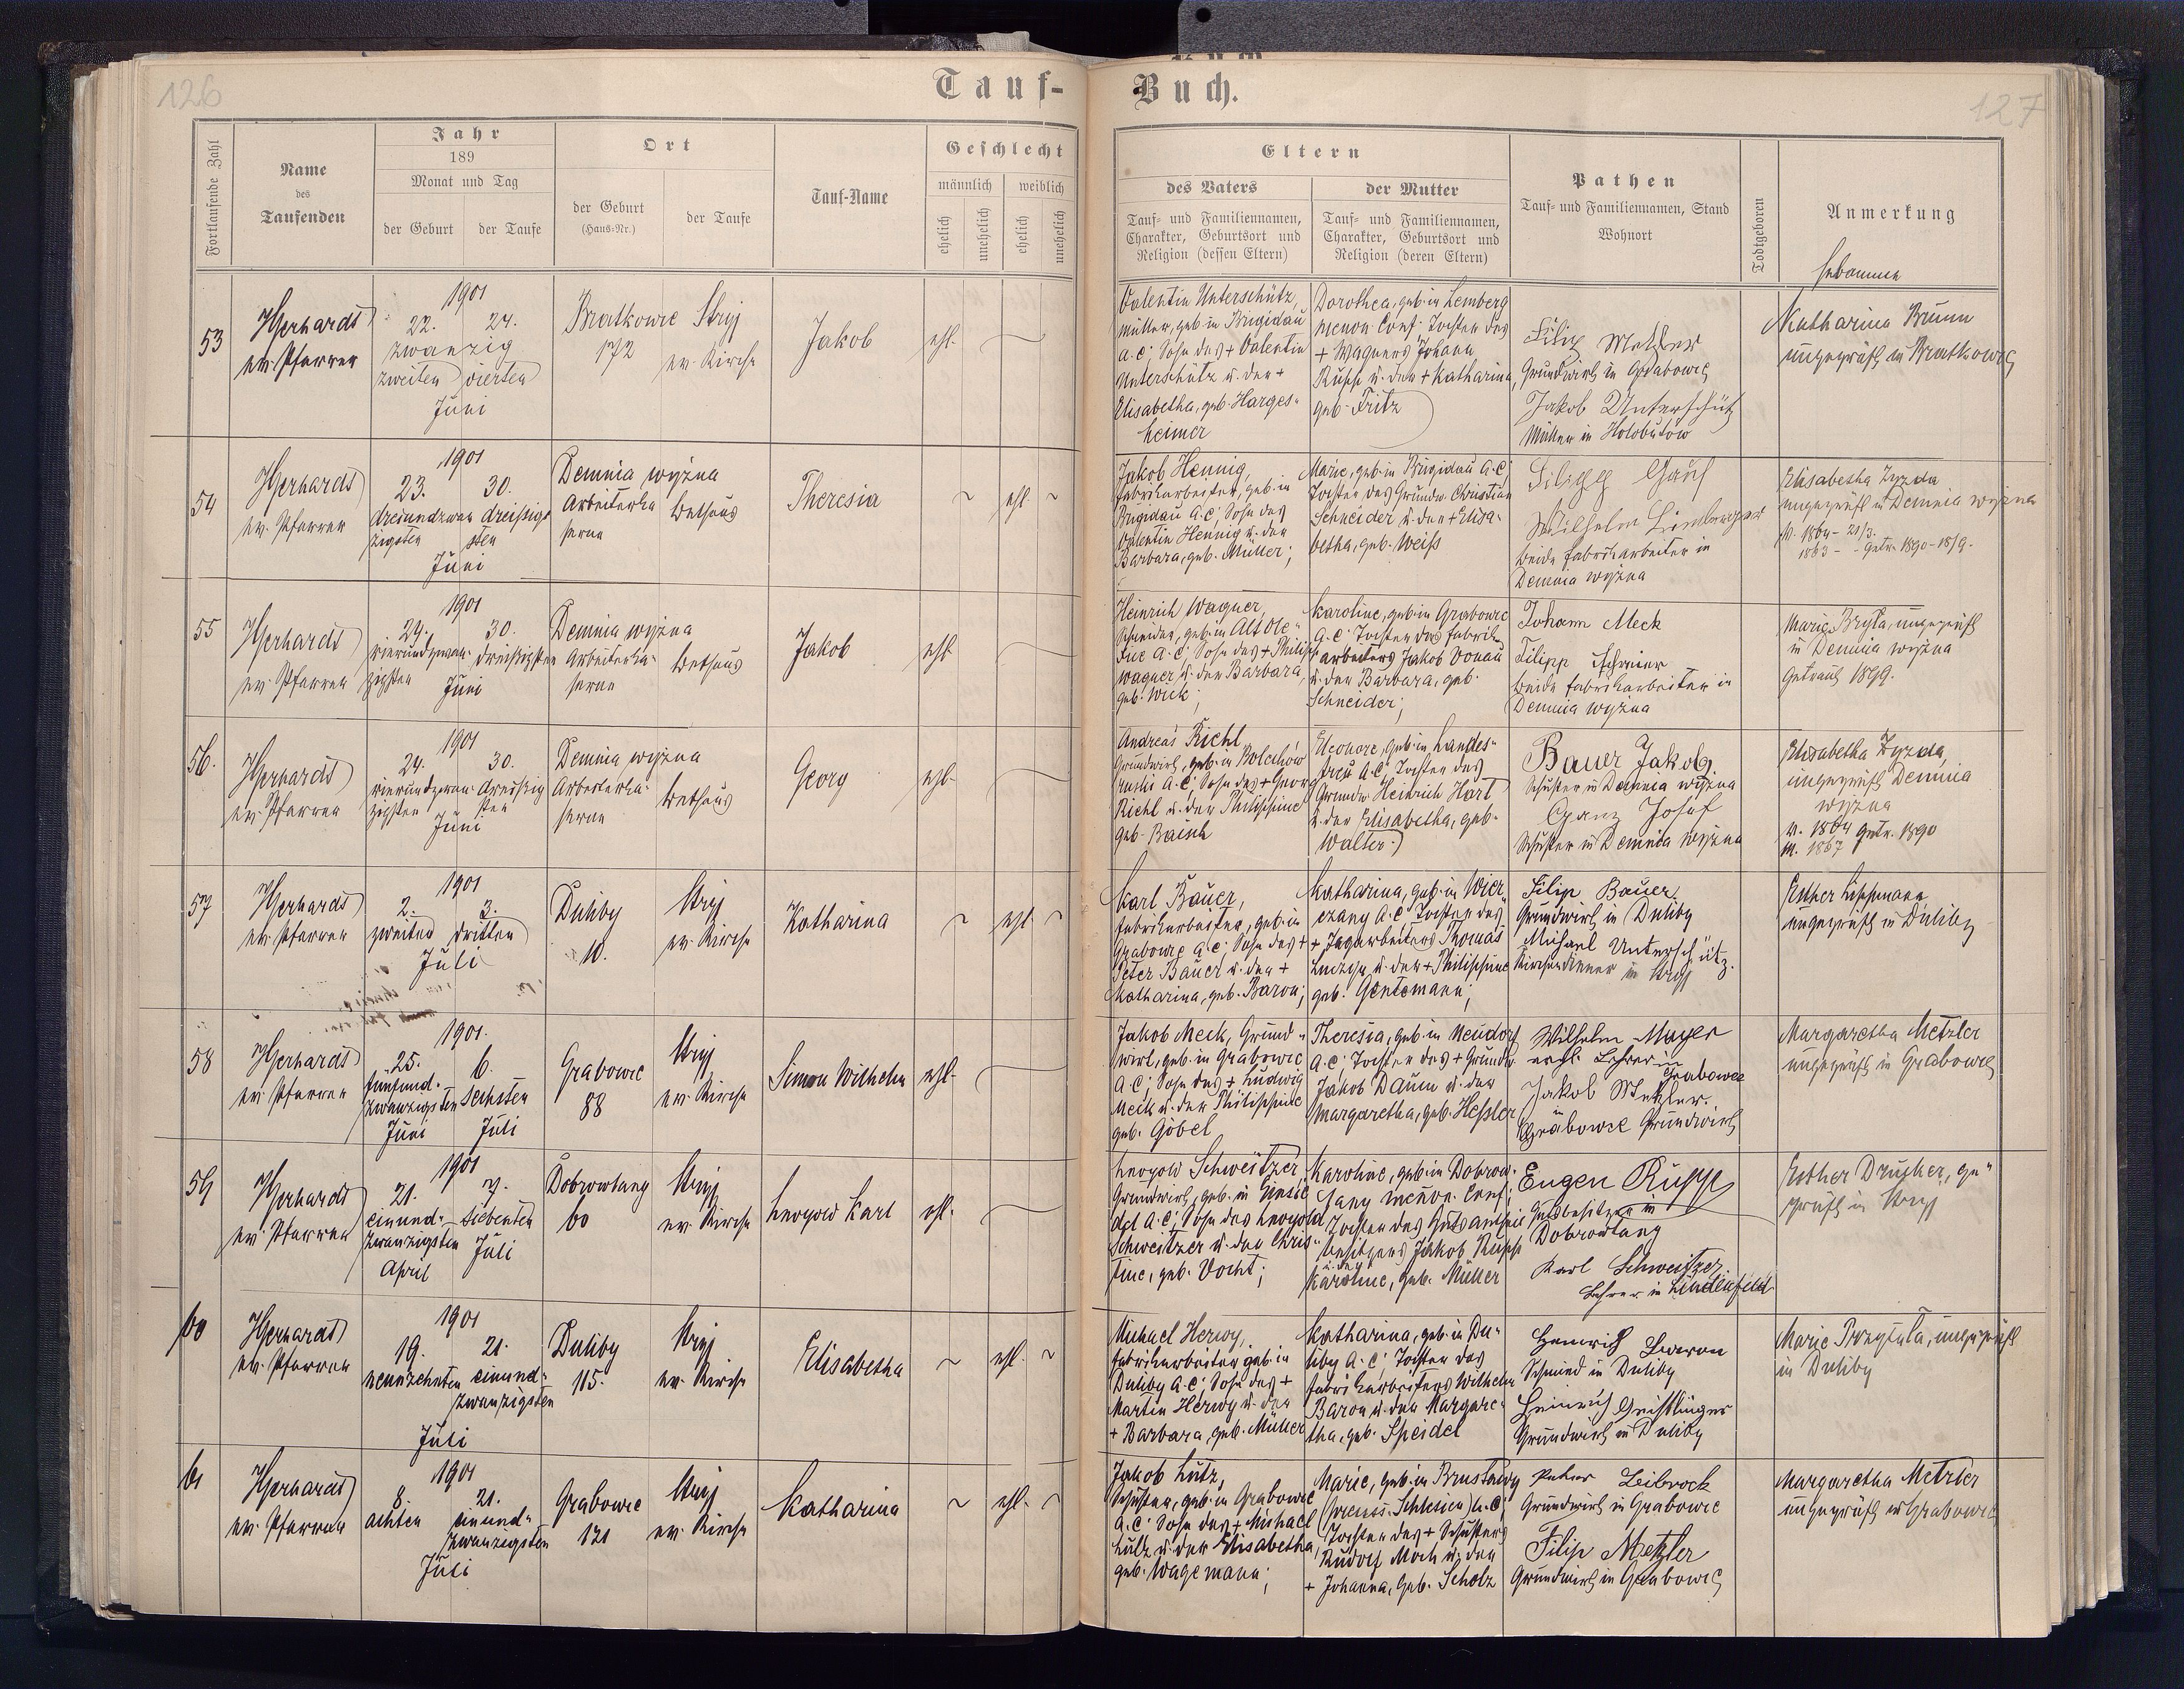 126
Tauf-
Buch.
127
Fortlaufende Zahl
Name
des
Taufenden
Jahr
189
Monat und Tag
der Geburt
der Taufe
Ort
der Geburt
(Haus-Nr.)
der Taufe
Tauf-Name
Geschlecht
männlich
weiblich
ehelich
unehelich
ehelich
unehelich
Eltern
des Vaters
Tauf- und Familiennamen,
Charakter, Geburtsort und
Religion (dessen Eltern)
der Mutter
Tauf- und Familiennamen,
Charakter, Geburtsort und
Religion (deren Eltern)
Pathen
Tauf- und Familiennamen, Stand
Wohnort
Todtgeboren
Anmerkung
Hebamme
53
Hgerhardt
ev. Pfarrer
1901
22. 24.
zwanzig
zweiten vierten
Juni
Bratkowce
172
Stryj
ev. Kirche
Jakob
ehl.
Valentin Unterschütz,
Müller, geb. in Brigidau
A.C; Sohn des + Valentin
Unterschütz u. der +
Elisabetha, geb. Harges-
heimer
Dorothea, geb. in Lemberg
menon. Conf. Tochter des
+ Wagners Johann
Rupp u. der + Katharina,
geb. Fritz
Filip Metzler
Grundwirth in Grabowce
Jakob Unterschütz
Müller in Holobutow
Katharina Brunn
ungeprüft in Bratkowce
54
Hgerhardt
ev. Pfarrer
1901
23. 30.
dreiundzwan dreißig
zigsten sten
Juni
Demnia wyżna
Arbeiterka
serne
Bethaus
Theresia
~ ehl ~
Jakob Hennig,
Fabriksarbeiter, geb. in
Brigidau A.C; Sohn des
Valentin Hennig u. der
Barbara, geb. Müller;
Marie, geb. in Brigidau A.C;
Tochter des Grundw. Christian
Schneider u. der + Elisa-
betha, geb. Weiß
Filipp Gauf
Wilhelm Limberger
Beide Fabriksarbeiter in
Demnia wyżna
Elisabetha Zyzda
ungeprüft in Demnia wyżna
1864 - 21/3.
1863 - Getr. 1890 - 18/9.
55
Hgerhardt
ev. Pfarrer
1901
24. 30.
vierundzwan- dreißigsten
zigsten
Juni
Demnia wyżna
Arbeiterka-
serne
Bethaus
Jakob
ehl.
Heinrich Wagner,
Schneider, geb. in Alt Ole-
A.C; Sohn des + Philipp
Wagner u. der Barbara,
geb. Wick;
Karoline, geb. in Grabowce
A.C; Tochter des Fabriks-
arbeiters Jakob Donau
u. der Barbara, geb.
Schneider;
Johann Meck
Filipp Schreier
Beide Fabriksarbeiter in
Demnia wyżna
Marie Bryła, ungeprüft
in Demnia wyżna
Getraut 1899.
56.
Hgerhardt
ev. Pfarrer
1901
24. 30.
vierundzwan- dreißig
zigsten sten
Juni
Demnia wyżna
Arbeiterka-
serne
Bethaus
Georg
ehl.
Andreas Richl
Grundwirth, geb. in Bolechów
ruski A.C; Sohn des + Georg
Richl u. der Philippine
geb. Baisch
Eleonore, geb. in Landes-
treu A.C; Tochter des
Grundw. Heinrich Hart
u. der Elisabetha, geb.
Walter.
Bauer Jakob
Schuster in Demnia wyżna
Ganz Josef
Schuster in Demnia wyżna
Elisabetha Zyzda,
ungeprüft Demnia
wyżna
v. 1864 Getr. 1890
m. 1867
57
Hgerhardt
ev. Pfarrer
1901
2. 3.
zweiten dritten
Juli
Duliby
10.
Stryj
ev. Kirche
Katharina
~ ehl ~
Karl Bauer,
Fabriksarbeiter, geb. in
Grabowce A.C; Sohn des +
Peter Bauer u. der +
Katharina, geb. Baron;
Katharina, geb. in Wier-
czany A.C; Tochter des
+ Tagarbeiters Thomas
u. der + Philippine
geb. Gentemann;
Filip Bauer
Grundwirth in Duliby
Michael Unterschütz.
Kirchendiener in Stryj
Esther Lippmann
ungeprüft in Duliby
58
Hgerhardt
ev. Pfarrer
1901.
25. 6.
fünfund-
zwanzigsten sechsten
Juni Juli
Grabowce
88
Stryj
ev. Kirche
Simon Wilhelm
ehl.
Jakob Meck, Grund-
wirt, geb. in Grabowce
A.C; Sohn des + Ludwig
Meck u. der Philippine
geb. Göbel
Theresia, geb. in Neudorf
A.C; Tochter des + Grundw.
Jakob Daum u. der
Margaretha, geb. Hessler
Wilhelm Mayer
evgl. Lehrer in
Grabowce
Jakob Metzler.
Grabowce Grundwirth
Margaretha Metzler
ungeprüft in Grabowce
59
Hgerhardt
ev. Pfarrer
1901
21. 7.
einund- siebenten
zwanzigsten
April Juli
Dobrowlany
60
Stryj
ev. Kirche
Leopold Karl
ehl.
Leopold Schweitzer
Grundwirth, geb. in Einsie-
del A.C; Sohn des Leopold
Schweitzer u. der Chris-
tine, geb. Vocht;
Karoline, geb. in Dobrow-
lany menon. Conf;
Tochter des Gutsantheil
besitzers Jakob Rupp
Karoline, geb. Müller
Eugen Rupp
Gutsbesitzer in
Dobrowlany
Karl Schweitzer
Lehrer in Lindenfeld
Esther Drucker, ge-
prüft in Stryj
60
Hgerhardt
ev. Pfarrer
1901
19. 21.
neunzehnten einund-
zwanzigsten
Juli
Duliby
115.
Stryj
ev. Kirche
Elisabetha
~ ehl. ~
Michael Herwy,
Fabriksarbeiter geb. in
Duliby A.C; Sohn des +
Martin Herwy u. der
+ Barbara, geb. Müller
Katharina, geb. in Du-
liby A.C; Tochter des
Fabriksarbeiters Wilhelm
Baron u. der Margare-
tha, geb. Speidel
Heinrich Baron
Schmied in Duliby
Heinrich Geistlinger
Grundwirth in Duliby
Marie Przytuła, ungeprüft
in Duliby
61
Hgerhardt
ev. Pfarrer
1901
8. 21.
achten einund-
zwanzigsten
Juli
Grabowce
121
Stryj
ev. Kirche
Katharina
~ ehl. ~
Jakob Lutz,
Schuster, geb. in Grabowce
A.C; Sohn des + Michael
Lutz u. der Elisabetha,
geb. Wagemann;
Marie, geb. in Brustawy
(preuss. Schlesien) A.C;
Tochter des + Schusters
Rudolf Moch u. der
+ Johanna, geb. Scholz
Peter Leibrock
Grundwirth in Grabowce
Filip Metzler
Grundwirth in Grabowce
Margaretha Metzler
ungeprüft in Grabowce